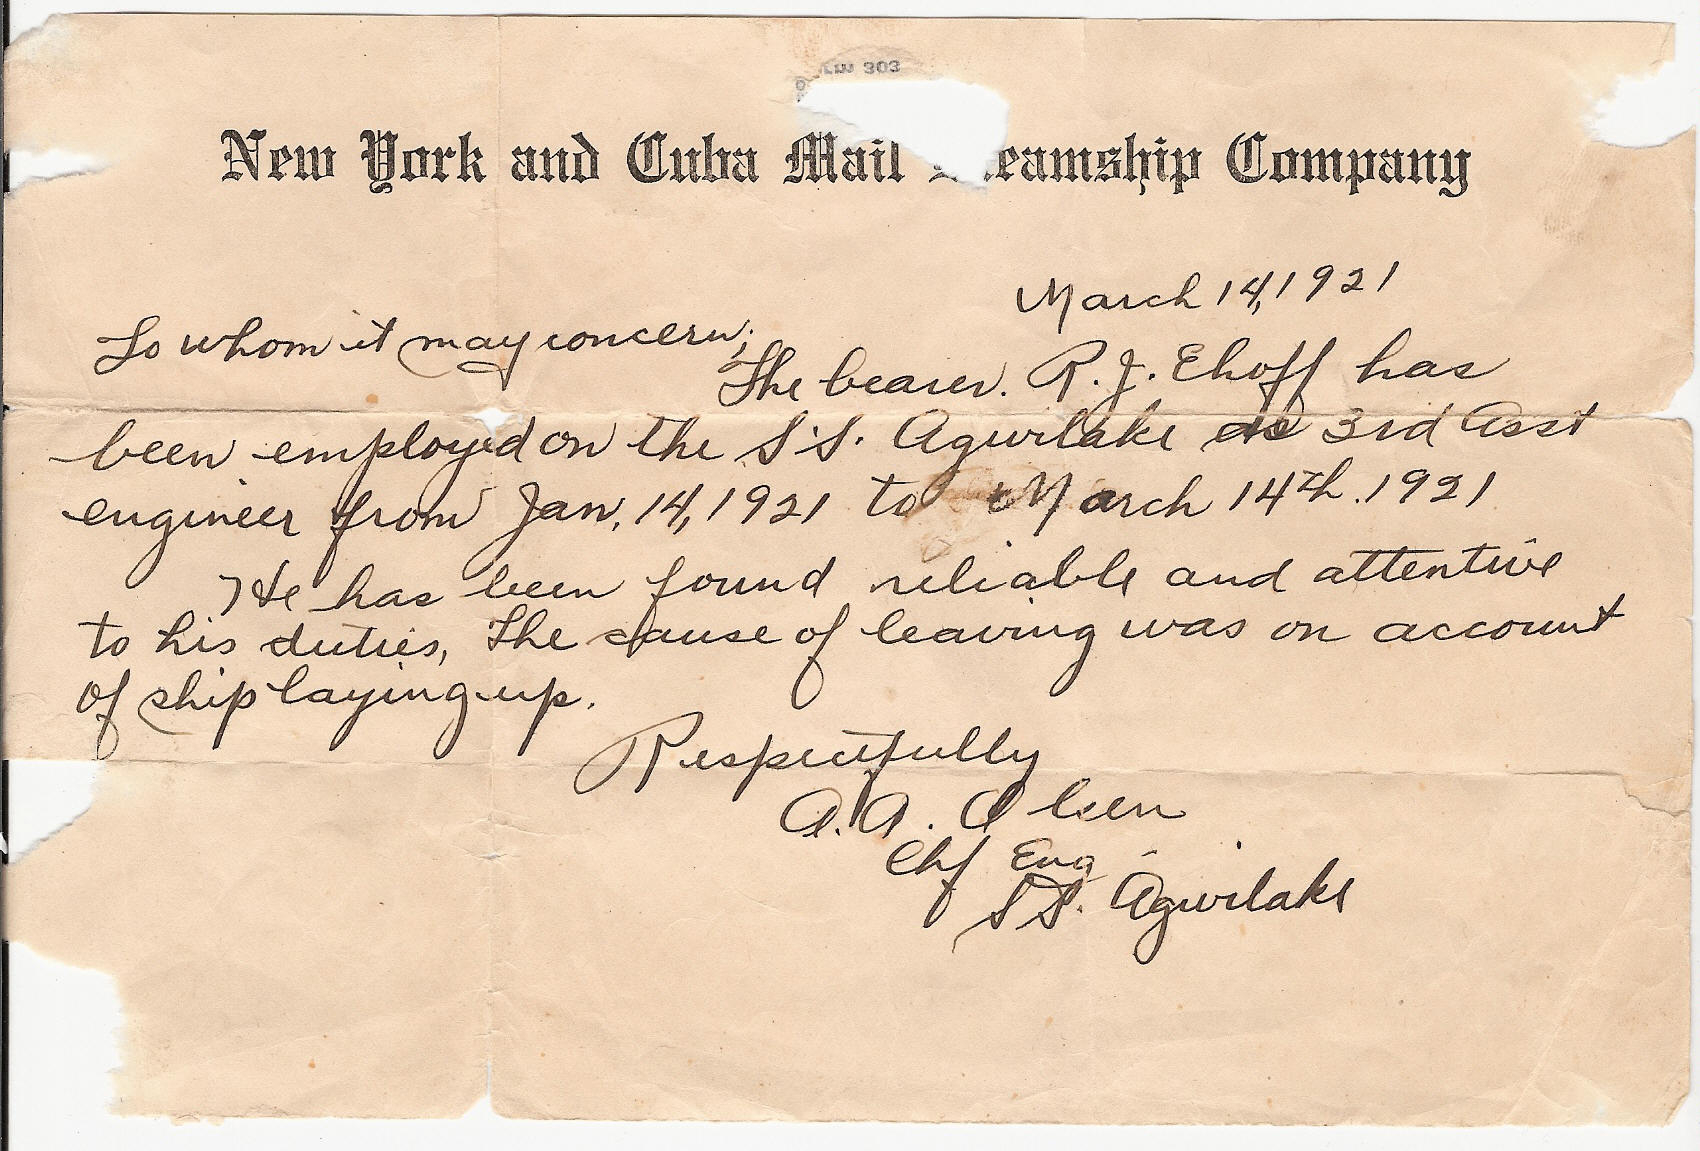 303
New York and Cuba Mail Steamship Company
March 14, 1921
To whom it may concern;
The bearer. R. J. Ehoff has
been employed on the S.S. Agwilake as 3rd Asst
engineer from Jan, 14, 1921 to March 14th. 1921
He has been found reliable and attentive
to his duties, The cause of leaving was on account
of ship laying up.
Respectfully
A. A. Olsen
Chf Eng
S.S. Agwilake